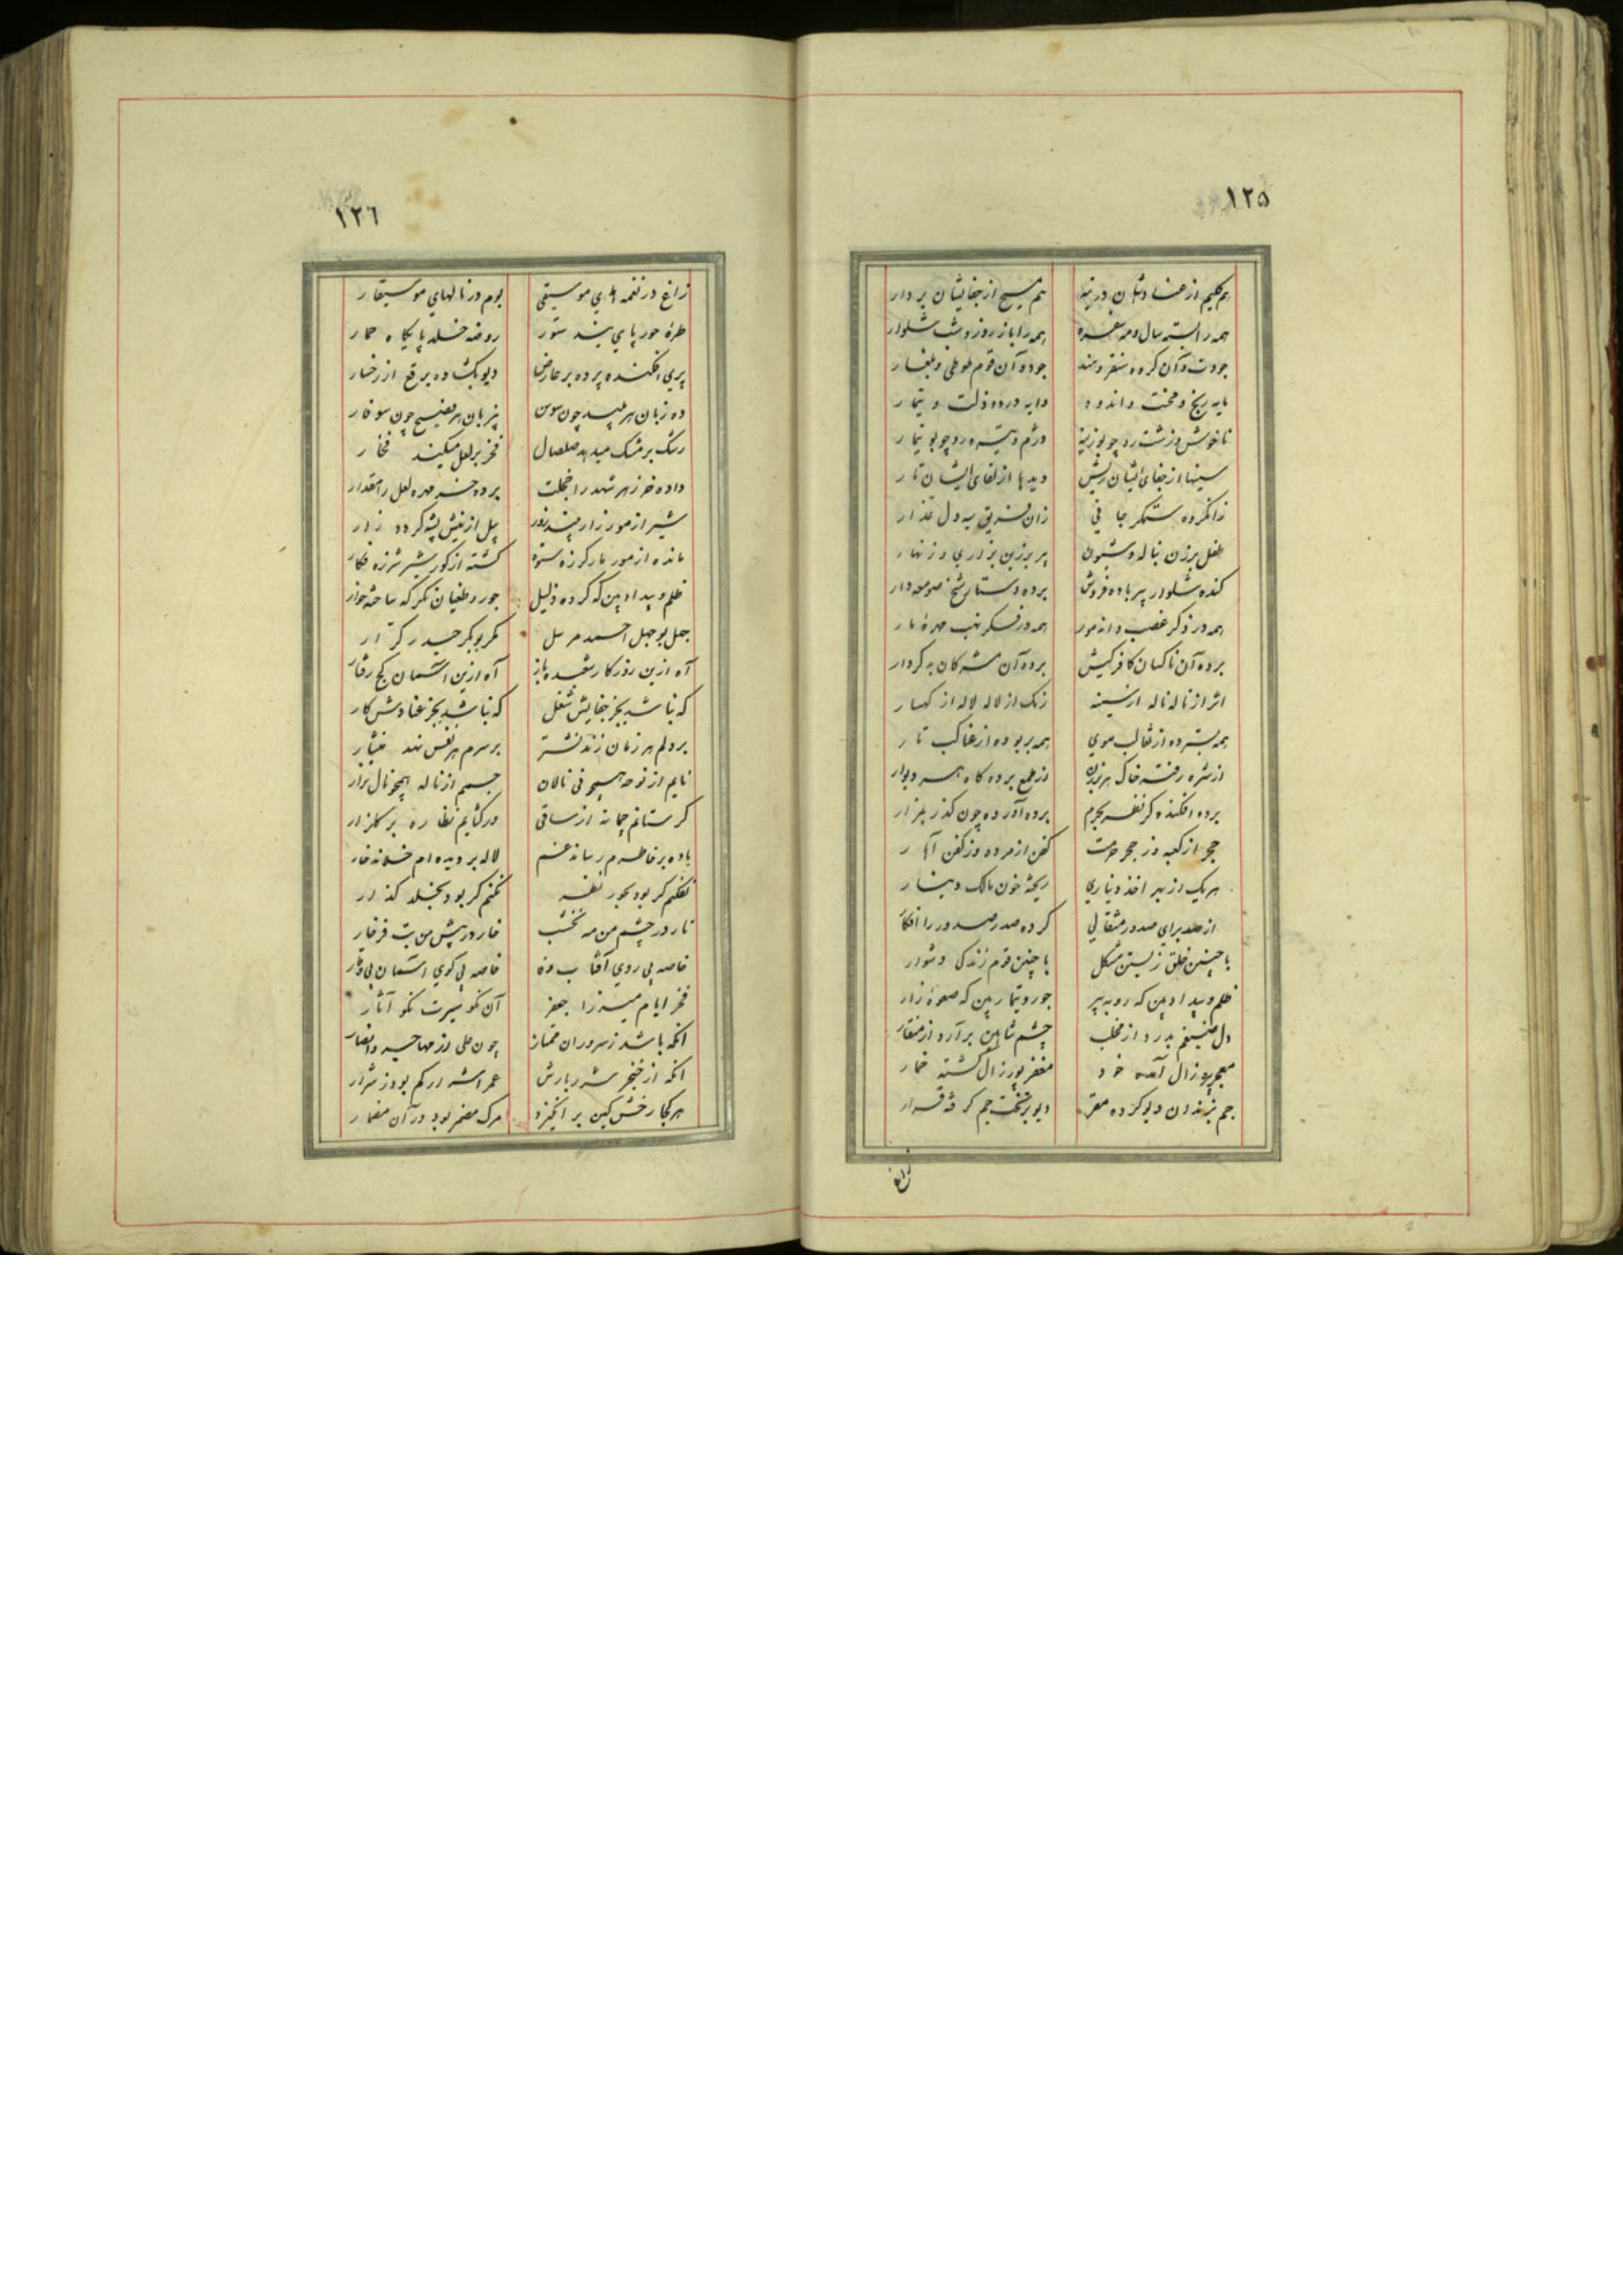 ۱۲۵
هم کلیم از عنادشان در تیه هم مسیح از جفایشان بر دار
همه را بسته سال و مه سفره همه را باز روز و شب شلوار
مایه رنج و محنت و اندوه دایه درد و ذلت و تیمار
ناخوش و زشت رو چو بوزینه دژم و تیره رو چو بوتیمار
سینها از جفای ایشان ریش دیدها از لقای ایشان تار
زانگروه ستمگر جافی زان فریق سیه دل غدار
طفل برزن بناله و شیون پیر برزین بزاری و زنهار
کنده شلوار پیر باده فروش برده دستار شیخ صومعه دار
همه در ذکر غصب دانه مور همه در فکر نهب مهره مار
برده آن ناکسان کافرکیش برده آن مشرکان بد کردار
اثر از ناله ناله از سینه رنگ از لاله لاله از کهسار
همه بسترده از قالب موی همه بربوده از عناکب تار
از شره رفته خاک هر برزن از طمع برده کاه هر دیوار
حجر از کعبه وز حجر حرمت کفن از مرده وز کفن آهار
هر یک از بهر اخذ دیناری ریخته خون مالک دینار
از حسد برای صدور مثقالی کرده صدر صدور را افکار
با چنین خلق زیستن مشکل با چنین قوم زندگی دشوار
ظلم و بیداد بین که روبه پیر جور و تیمار بین که صعوه زار
دل ضیغم بدرد از مخلب چشم شاهین برآرد از منقار
معجر پیرزال آمده خود مغفر پور زال گشته خمار
جم بزندان دیو کرده مقر دیو بر تخت جم گرفته قرار
زاغ
۱۲٦
زاغ در نغمه های موسیقی بوم در نالهای موسیقار
طره حور پای بند ستور روضه خلد پایگاه حمار
پری افکنده پرده بر عارض دیو بگشاده برقع از رخسار
ده زبان هر پلید چون سوسن بیزبان هر فصیح چون سوفار
رشک بر مشک میدهد صلصال فخر بر لعل میکند فخار
داده خر زهر شهد را خجلت برده خر مهره لعل را مقدار
شیر از مور زار بیند زور پیل از نیش پشه گردد زار
مانده از مور مار گرزه ستوه گشته از گور شیر شرزه فکار
ظلم و بیداد بین که کرده ذلیل جور و طغیان نگر که ساخته خوار
جهل بوجهل احمد مرسل مکر بوبکر حیدر کرار
آه ازین روزگار شعبده باز آه ازین آسمان کج رفتار
که نباشد بجز جفایش شغل که نباشد بجز عنادش کار
بر دلم هر زمان زند نشتر بر سرم هر نفس نهد منشار
نایم از نوحه همچو نی نالان جسمم از ناله همچو نال نزار
گر ستانم چمانه از ساقی ور گشایم نظاره بر گلزار
باده بر خاطرم رساند غم لاله بر دیده ام خلاند خار
نفکنم گر بود بحور نظر نکنم گر بود بخلد گذار
نار در چشم من مه نخشب خار در پیش من بت فرخار
خاصه بی روی آفتاب وفا خاصه بی کوی آسمان وقار
فخر ایام میرزا جعفر آن نکو سیرت نکو آثار
آنکه باشد ز سروران ممتاز چون علی از مهاجر و انصار
آنکه از خنجر شرربارش عمر اشرار کم بود ز شرار
هر کجا رخش کین بر انگیزد مرگ مضمر بود در آن مضمار